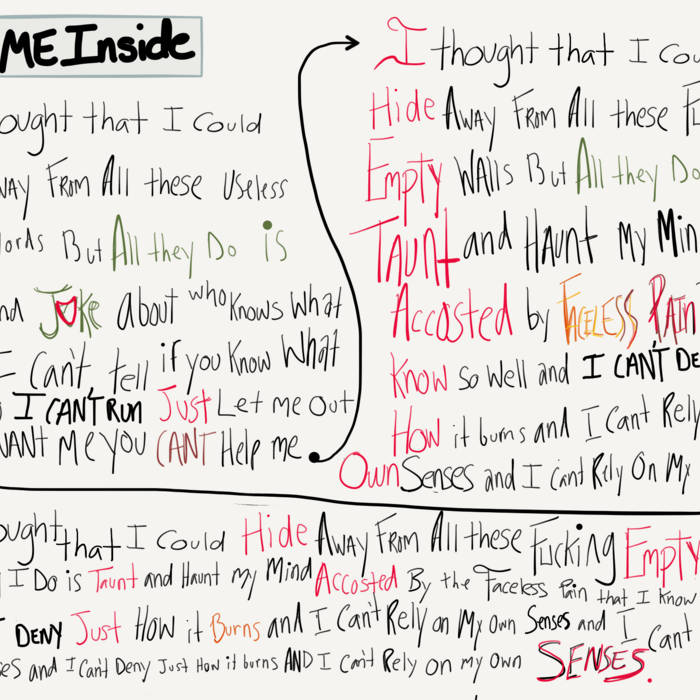 ME Inside
ought that I Could
WAY From All these Useless
Words But All they Do is
and Joke About who knows What
I Can't tell if you Know What
I CAN'T RUN Just Let me Out
WANT Me you CANT Help me
I thought that I Cou
Hide AWAy From All these Fu
Empty WAlls But All they Do
TAUNT and HAUNT My Min
Accosted by FACELESS PAIN
Know so well and I CAN'T DE
How it burns and I Cant Rely
Own Senses and I cant Rely On My
ought that I Could Hide AWAy From All these Fucking Empty
I Do is Taunt and Haunt my Mind Accosted By the Faceless Pain that I Know
DENY Just How it Burns and I Can't Rely on My Own Senses and I Cant
ses and I Can't Deny Just How it burns AND I Can't Rely on my own SENSES.